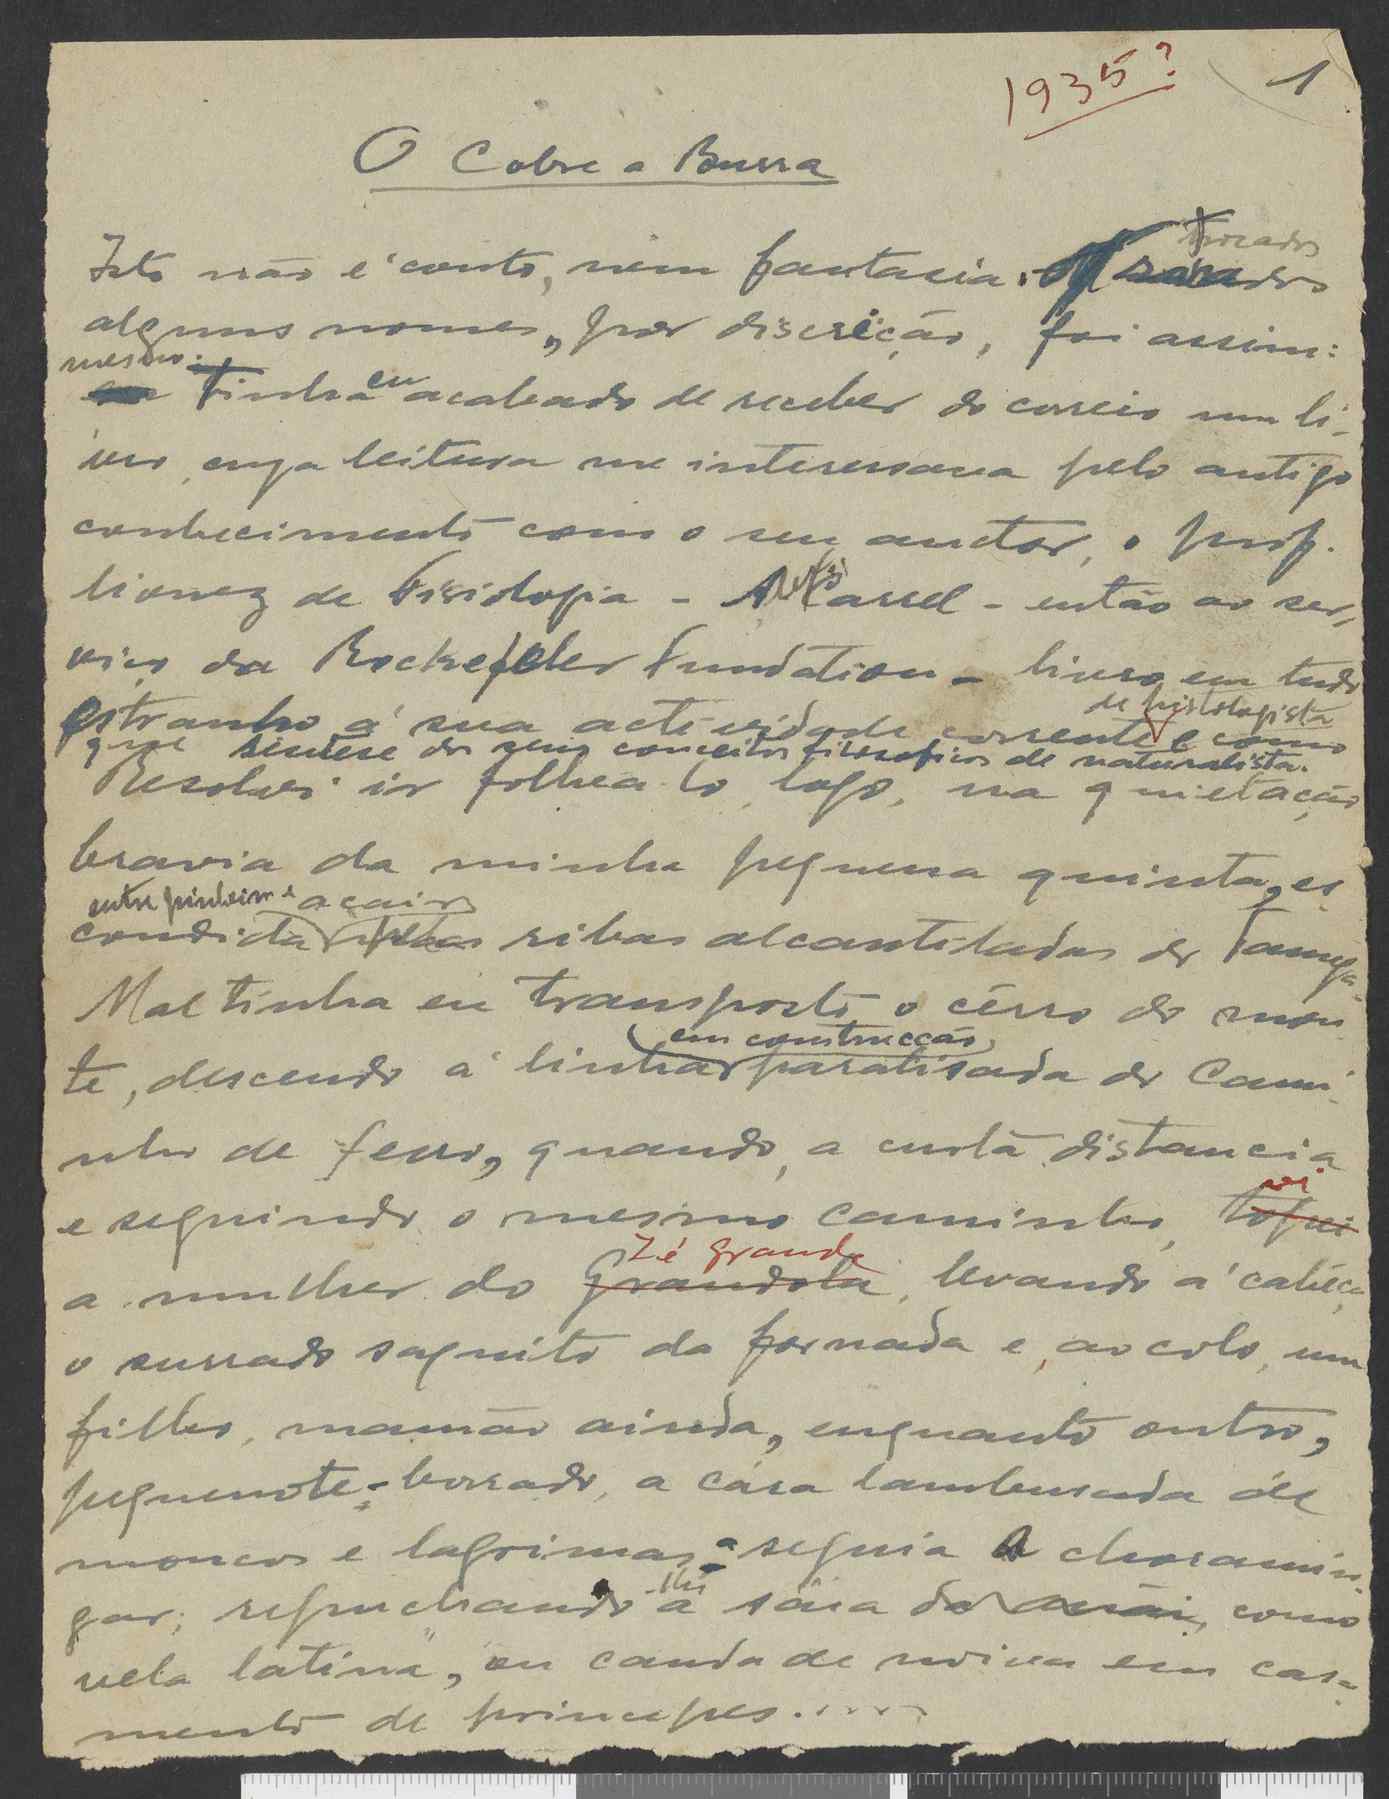 1935? 1
O Cobre a Burra
trocados
Isto não é conto, nem fantasia.
alguns nomes, por discrição, foi assim:
mesmo.
Tinha eu acabado de receber do correio um li-
vro, cuja leitura me interessava pelo antigo
conhecimento com o seu auctor, o prof.
lionez de fisiologia - Carrel - então ao ser-
viço da Rockefeler Fundation - livro em tudo
de histologista
estranho á sua actividade corrente e como
que sintese dos seus conceitos filosoficos de naturalista.
Resolvi ir folhea-lo, logo, na quietação
bravia da minha pequena quinta, es
entre pinheiros e
condida ribas alcantiladas do Tamega.
Mal tinha eu transposto o cêrro do mon
em construcção
te, descendo á linha paralisada do Cami-
nho de ferro, quando, a curta distancia
e seguindo o mesmo caminho, topei
vi
Zé grande
a mulher do Grandola, levando á cabeça
o surrado saquito da fornada e, ao colo, um
filho, mamão ainda, enquanto outro,
pequenote-borrado, a cára lambusada de
moncos e lagrimas, a seguia a choramin-
lhe
gar; repuchando a sáia da mãi, como
vela latina, ou cauda de noiva em casa-
mento de principes.....